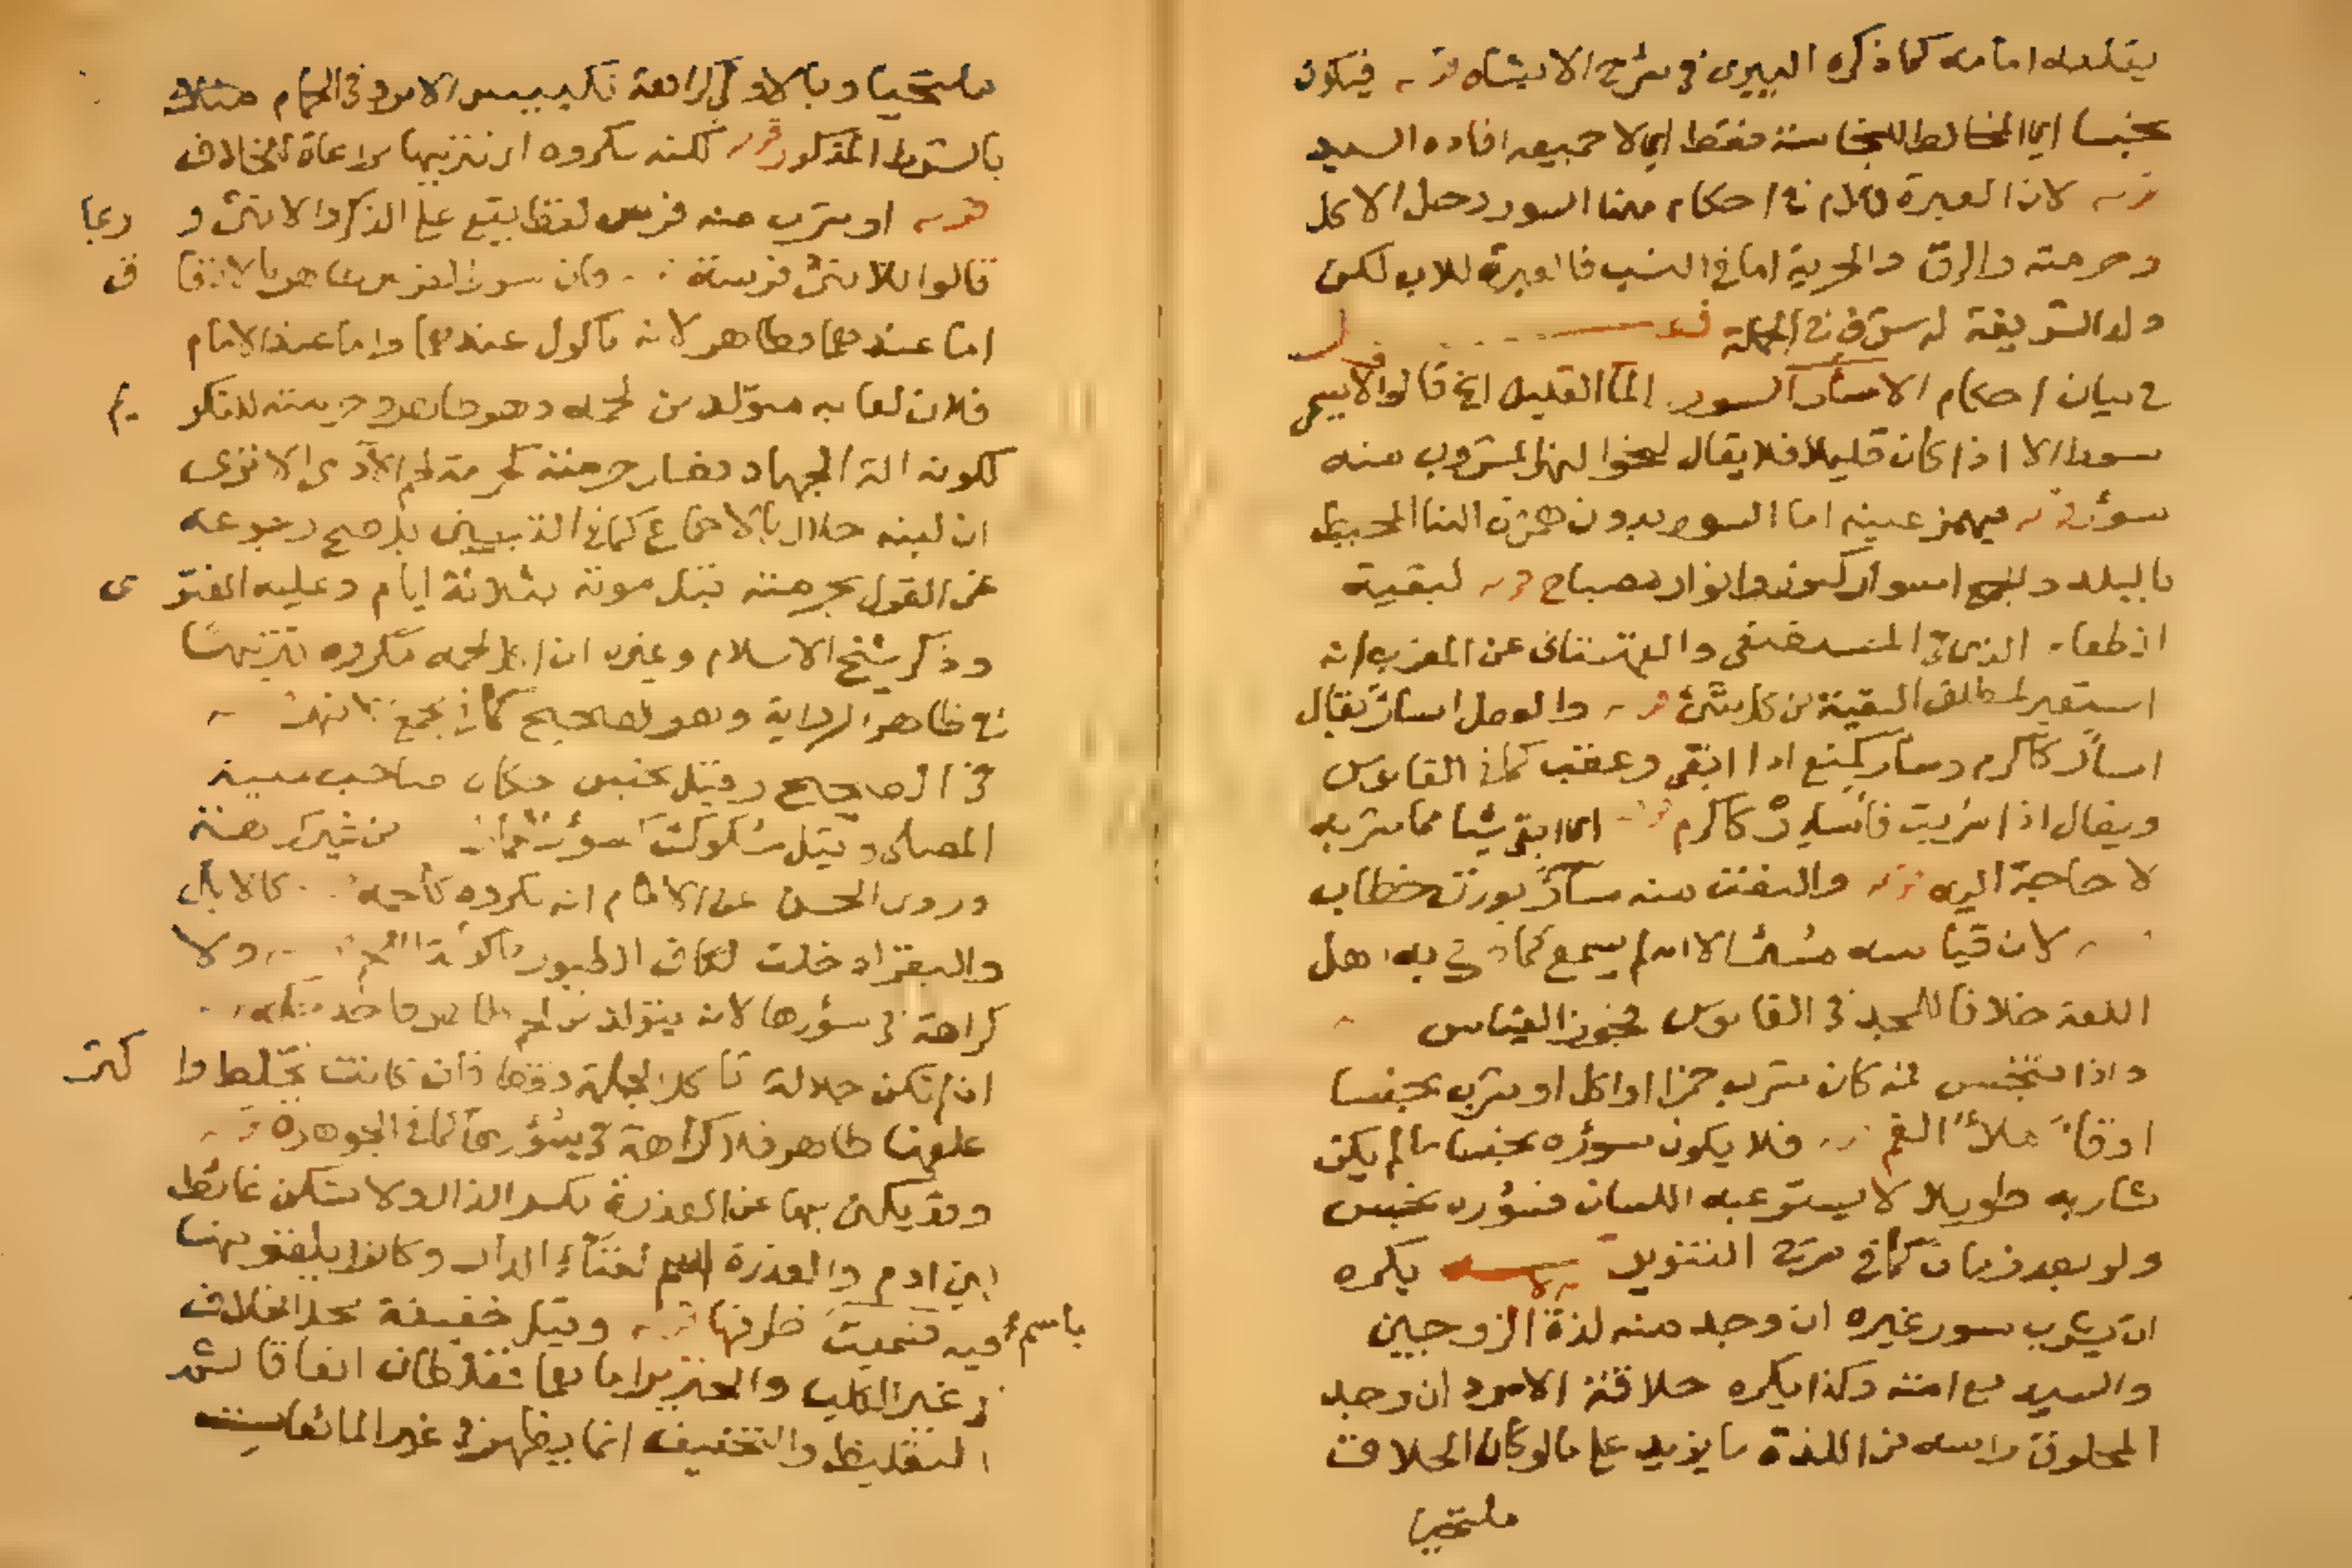 يقلد امامه كما ذكره البيرى فى شرح الاشباه قوله فيكون
نجسا اى المخالط للنجاسة فقط اى لا جميعه افاده السيد
قوله لان العبرة للام فى احكام منها السور وحل الاكل
وحرمته والرق والحرية اما فى النسب فالعبرة للاب لكن
ولد الشريفة له شرف فى الجملة
فى بيان احكام الاسار السور الما القليل الخ قالوا لا يسمى
سورا الا اذا كان قليلا فلا يقال لنحو النهر المشروب منه
سؤر قوله بهمز عينه اما السور بدون همزة البنا المحيط
بالبلد والجمع اسوار كنور وانوار مصباح قوله لبقية
الطعام الذى فى المستصفى والقهستانى عن المغرب انه
استعير لمطلق البقية من كل شئ قوله والفعل اسأر يقال
اسأر كاكرم وسأر كمنع اذا ابقى وعقب كما فى القاموس
ويقال اذا شربت فأسئر كاكرم قوله اى ابق شيا مما شربه
لا حاجة اليه قوله والنعت منه سأر بوزن خطاب
لان قياسه مسئر الا انه لم يسمع كما صرح به اهل
اللغة خلافا للمجد فى القاموس فجوز القياس
واذا تنجس فمه كان شرب خمرا او اكل او شرب نجسا
او قاء ملأ الفم قوله فلا يكون سؤره نجسا ما لم يكن
شاربه طويلا لا يستوعبه اللسان فسؤره نجس
ولو بعد زمان كما فى شرح التنوير يكره
ان يشرب سور غيره ان وجد منه لذة الزوجين
والسيد مع امته وكذا يكره حلاقة الامرد ان وجد
المحلوق راسه من اللذة ما يزيد على ما لو كان الحلاق
ملتحيا
ملتحيا وبالاولى كراهة تكبيس الامرد فى الحمام مثلا
بالشرط المذكور قوله لكنه مكروه اى تنزيها مراعاة للخلاف
قوله او شرب منه فرس لفظ يقع على الذكر والانثى و ربما
قالوا للانثى فرسة فان سور الفرس طاهر بالاتفا ق
اما عندهما فطاهر لانه ماكول عندهما واما عند الامام
فلان لعابه متولد من لحمه وهو طاهر وحرمته للتكر يم
لكونه الة الجهاد فصار حرمته كحرمة لحم الآدمى الا ترى
ان لبنه حلال بالاجماع كما فى التبيين بل صح رجوعه
عن القول بحرمته قبل موته بثلاثة ايام وعليه الفتو ى
وذكر شيخ الاسلام وغيره ان اكل لحمه مكروه تنزيها
فى ظاهر الرواية وهو الصحيح كما فى مجمع الانهر
فى الصحيح وقيل نجس حكاه صاحب منية
المصلى وقيل مشكوك كسؤر حمار من غير كراهة
وروى الحسن عن الامام انه مكروه كلحمه كالابل
والبقر ادخلت الكاف الطيور ماكولة اللحم ولا
كراهة فى سؤرها لانه يتولد من لحم طاهر فاخذ حكمه
ان لم تكن جلالة تاكل الجلة فقط فان كانت تخلط وا كثر
علفها طاهر فلا كراهة فى سؤرها كما فى الجوهرة قوله
وقد يكنى بها عن العذرة بكسر الذال ولا تسكن غائط
ابن ادم والعذرة اسم لفناء الدار وكانوا يلقونها
فيه فسميت باسم ظرفها قوله وقيل خفيفة محل الخلاف
فى غير الكلب والخنزير اما هما فغليظان اتفاقا ثم
التغليظ والتخفيف انما يظهر فى غير المائعات